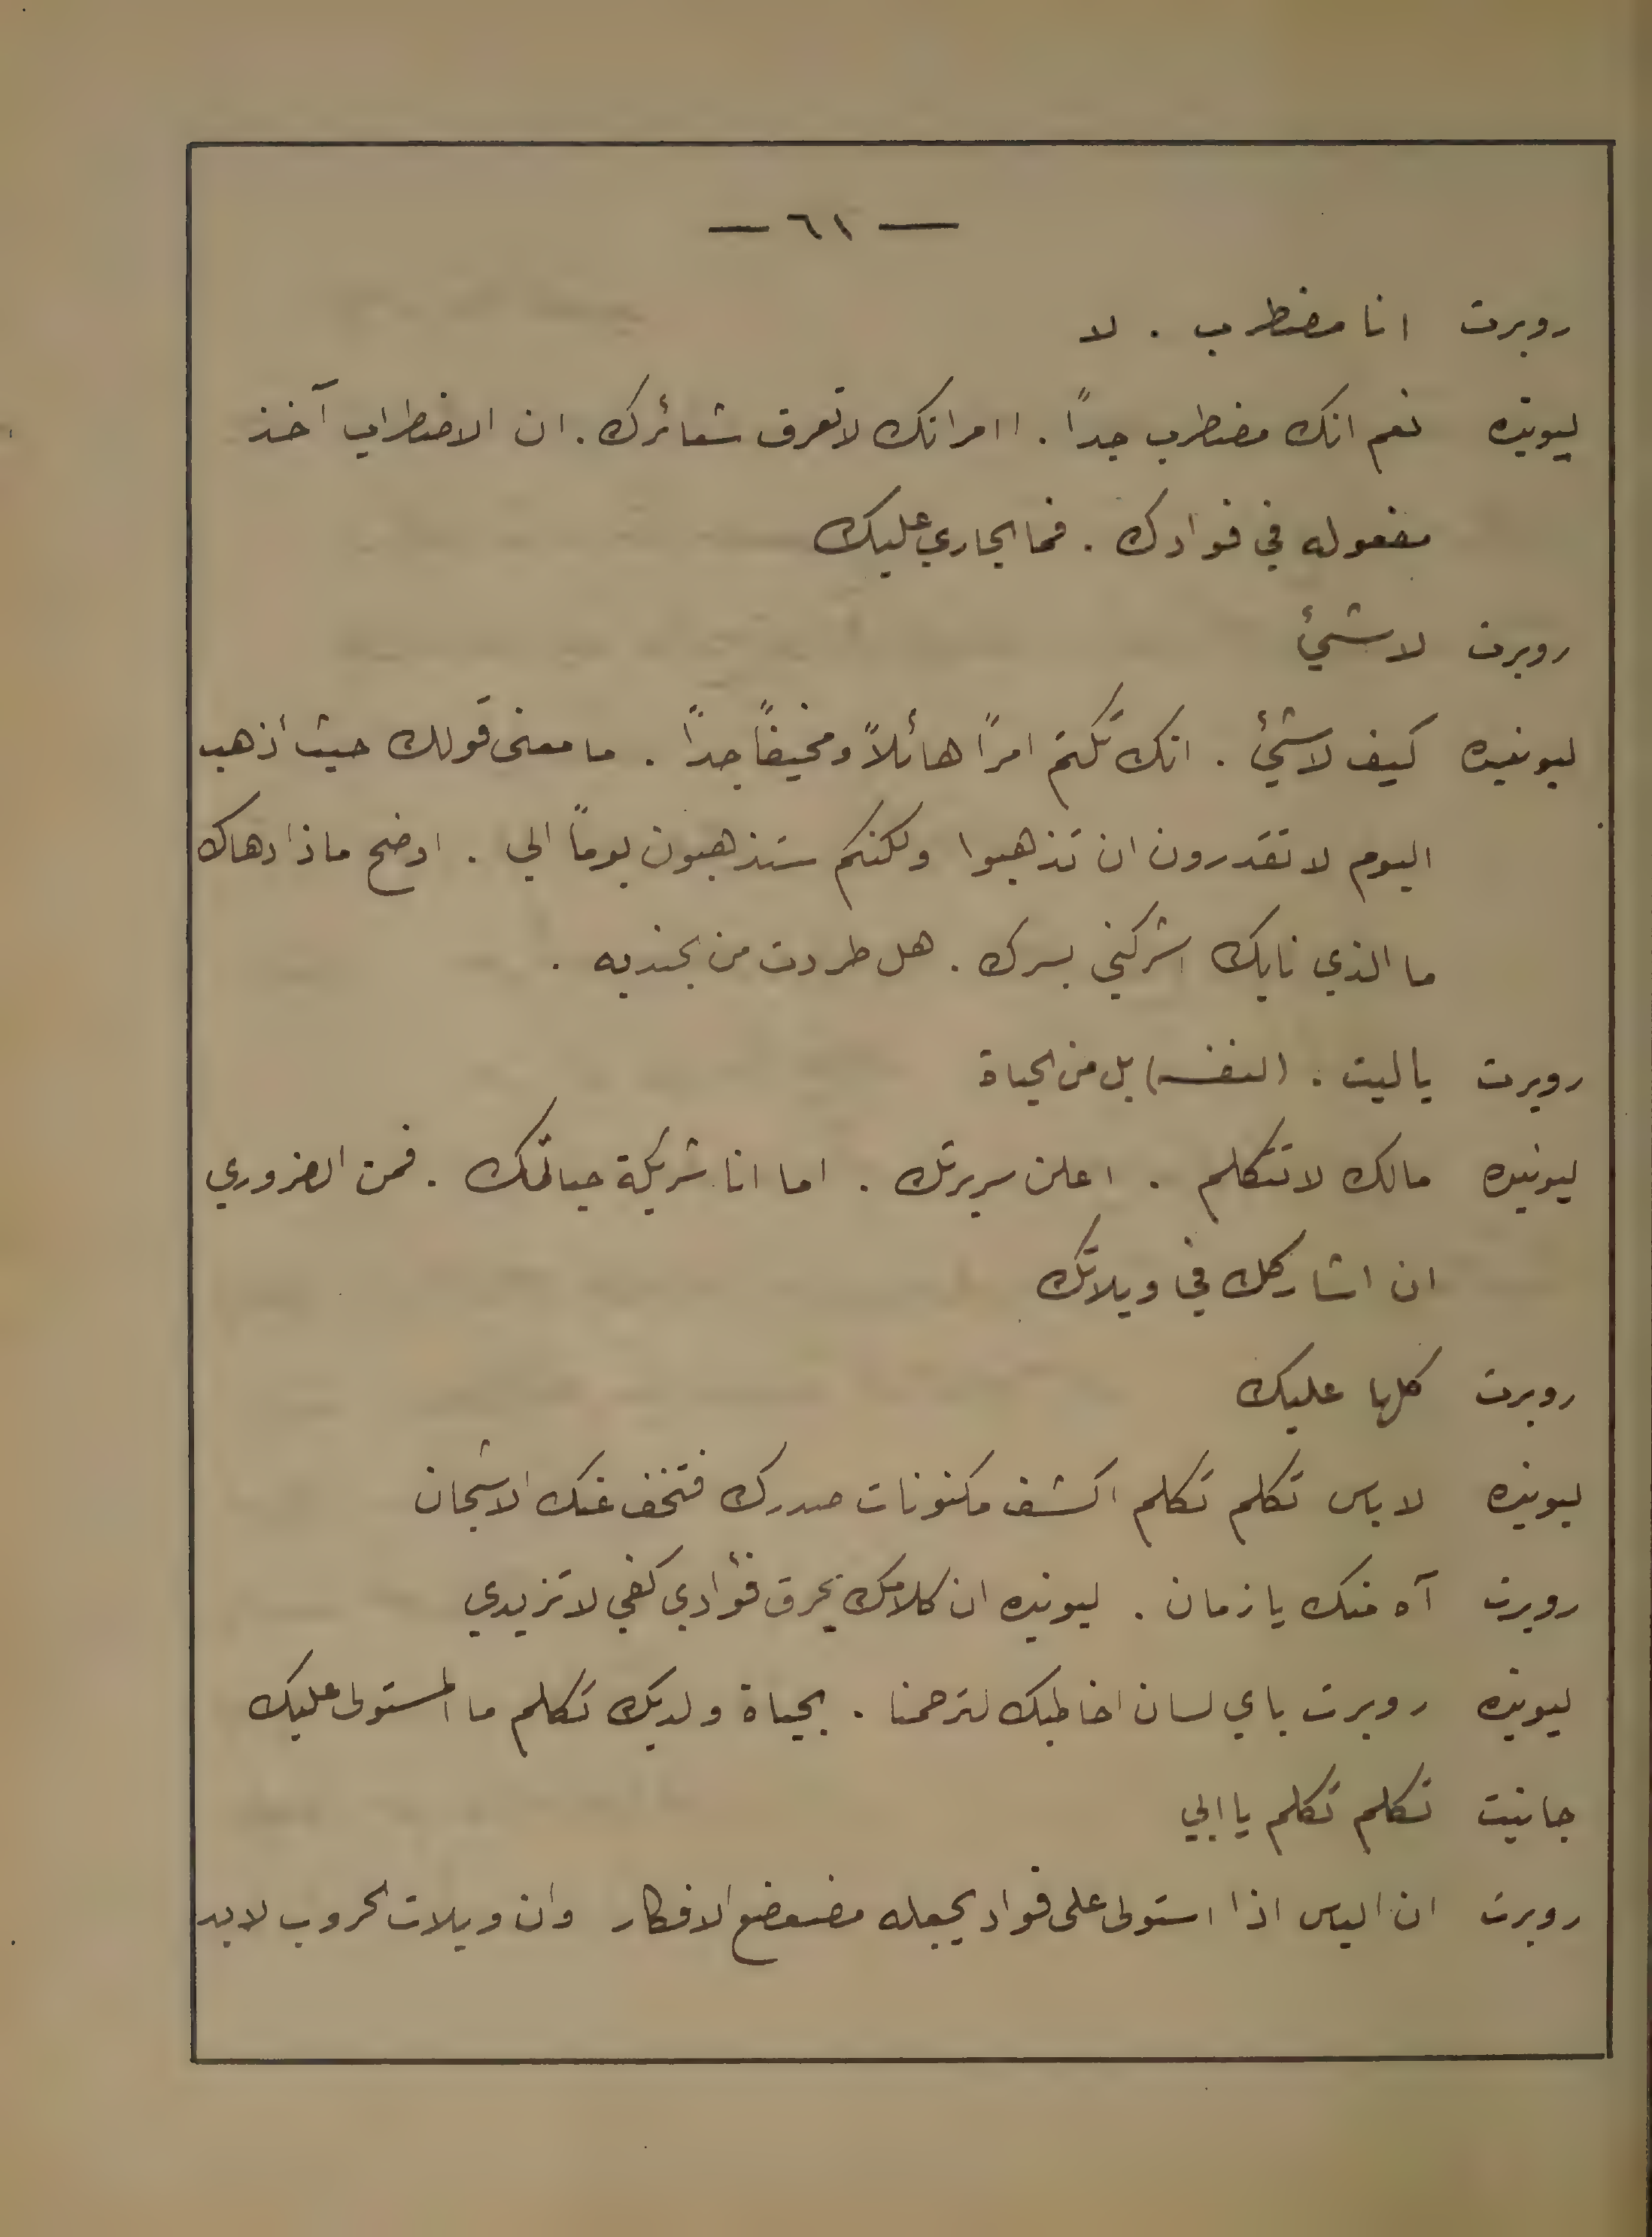 — ٦١ —
روبرت انا مضطرب . لا
ليونيده نعم انك مضطرب جداً . اامراتك لا تعرف شعائرك . ان الاضطراب آخذ
مفعوله في فوادك . فما الجاري عليك
روبرت لا شيئ
ليونيده كيف لا شيئ . انك تكتم امراً هائلاً ومخيفاً جداً . ما معنى قولك حيث أذهب
اليوم لا تقدرون ان تذهبوا ولكنكم ستذهبون يوماً الي . اوضح ماذا دهاك
ما الذي نابك اشركني بسرك . هل طردت من الجنديه .
روبرت يا ليت . (لنفسه) بل من الحياة
ليونيده مالك لا تتكلم . اعلن سريرتك . اما انا شريكة حياتك . فمن الضروري
ان اشاركك في ويلاتك
روبرت كلها عليك
ليونيده لا باس تكلم تكلم اكشف مكنونات صدرك فتخف عنك الاشجان
روبرت آه منك يا زمان . ليونيده ان كلامك يحرق فؤادي كفى لا تزيدي
ليونيده روبرت باي لسان اخاطبك لترحمنا . بحياة ولديك تكلم ما المستولى عليك
جانيت تكلم تكلم يا ابي
روبرت ان الياس اذا استولى على فواد يجعله مضعضع الافكار وان ويلات الحروب لا بد